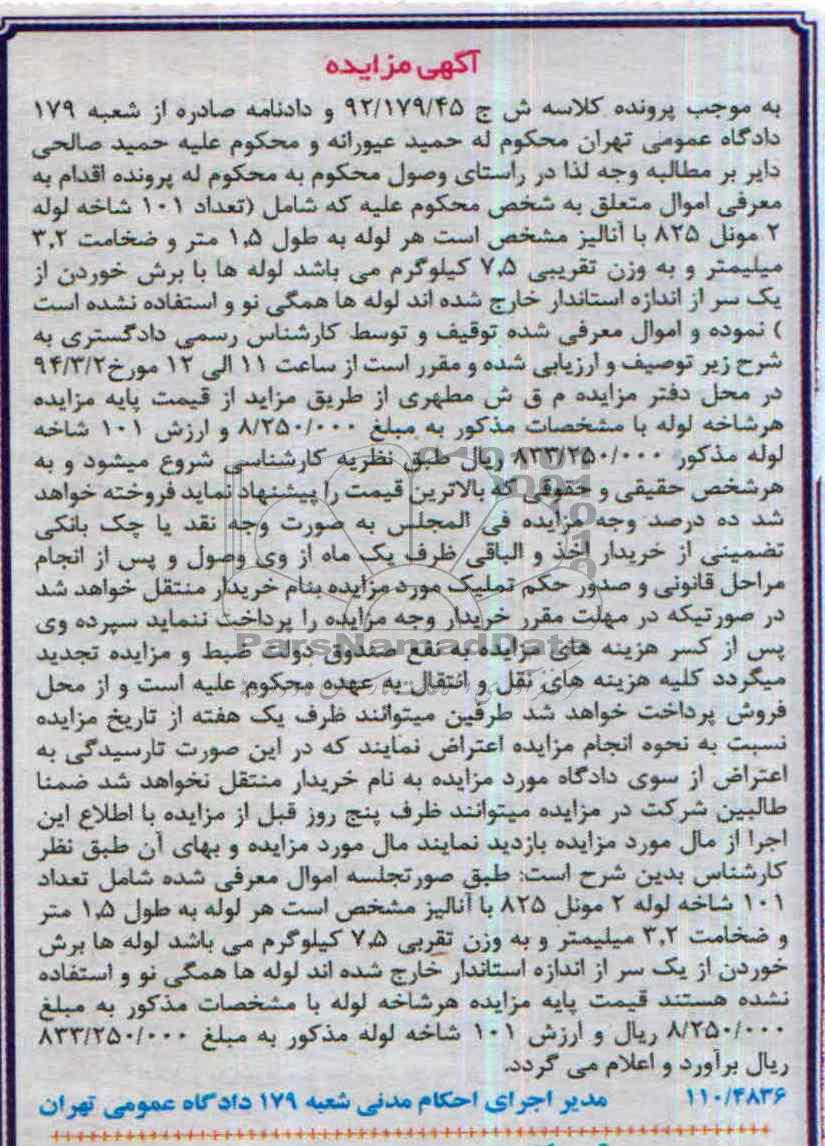 آگهی مزایده
به موجب پرونده کلاسه ش ج ۹۲/۱۷۹/۴۵ و دادنامه صادره از شعبه ۱۷۹
دادگاه عمومی تهران محکوم له حمید عیورانه و محکوم علیه حمید صالحی
دایر بر مطالبه وجه لذا در راستای وصول محکوم به محکوم له پرونده اقدام به
معرفی اموال متعلق به شخص محکوم علیه که شامل (تعداد ۱۰۱ شاخه لوله
۲ مونل ۸۲۵ با آنالیز مشخص است هر لوله به طول ۱,۵ متر و ضخامت ۳,۲
میلیمتر و به وزن تقریبی ۷,۵ کیلوگرم می باشد لوله ها با برش خوردن از
یک سر از اندازه استاندار خارج شده اند لوله ها همگی نو و استفاده نشده است
) نموده و اموال معرفی شده توقیف و توسط کارشناس رسمی دادگستری به
شرح زیر توصیف و ارزیابی شده و مقرر است از ساعت ۱۱ الی ۱۲ مورخ۹۴/۳/۲
در محل دفتر مزایده م ق ش مطهری از طریق مزاید از قیمت پایه مزایده
هرشاخه لوله با مشخصات مذکور به مبلغ ۸/۲۵۰/۰۰۰ و ارزش ۱۰۱ شاخه
لوله مذکور ۸۳۳/۲۵۰/۰۰۰ ریال طبق نظریه کارشناسی شروع میشود و به
هرشخص حقیقی و حقوقی که بالاترین قیمت را پیشنهاد نماید فروخته خواهد
شد ده درصد وجه مزایده فی المجلس به صورت وجه نقد یا چک بانکی
تضمینی از خریدار اخذ و الباقی ظرف یک ماه از وی وصول و پس از انجام
مراحل قانونی و صدور حکم تملیک مورد مزایده بنام خریدار منتقل خواهد شد
در صورتیکه در مهلت مقرر خریدار وجه مزایده را پرداخت ننماید سپرده وی
پس از کسر هزینه های مزایده به نفع صندوق دولت ضبط و مزایده تجدید
میگردد کلیه هزینه های نقل و انتقال به عهده محکوم علیه است و از محل
فروش پرداخت خواهد شد طرفین میتوانند ظرف یک هفته از تاریخ مزایده
نسبت به نحوه انجام مزایده اعتراض نمایند که در این صورت تارسیدگی به
اعتراض از سوی دادگاه مورد مزایده به نام خریدار منتقل نخواهد شد ضمنا
طالبین شرکت در مزایده میتوانند ظرف پنج روز قبل از مزایده با اطلاع این
اجرا از مال مورد مزایده بازدید نمایند مال مورد مزایده و بهای آن طبق نظر
کارشناس بدین شرح است: طبق صورتجلسه اموال معرفی شده شامل تعداد
۱۰۱ شاخه لوله ۲ مونل ۸۲۵ با آنالیز مشخص است هر لوله به طول ۱,۵ متر
و ضخامت ۳,۲ میلیمتر و به وزن تقربی ۷,۵ کیلوگرم می باشد لوله ها برش
خوردن از یک سر از اندازه استاندار خارج شده اند لوله ها همگی نو و استفاده
نشده هستند قیمت پایه مزایده هرشاخه لوله با مشخصات مذکور به مبلغ
۸/۲۵۰/۰۰۰ ریال و ارزش ۱۰۱ شاخه لوله مذکور به مبلغ ۸۳۳/۲۵۰/۰۰۰
ریال برآورد و اعلام می گردد.
۱۱۰/۴۸۳۶ مدیر اجرای احکام مدنی شعبه ۱۷۹ دادگاه عمومی تهران
ParsNamadData